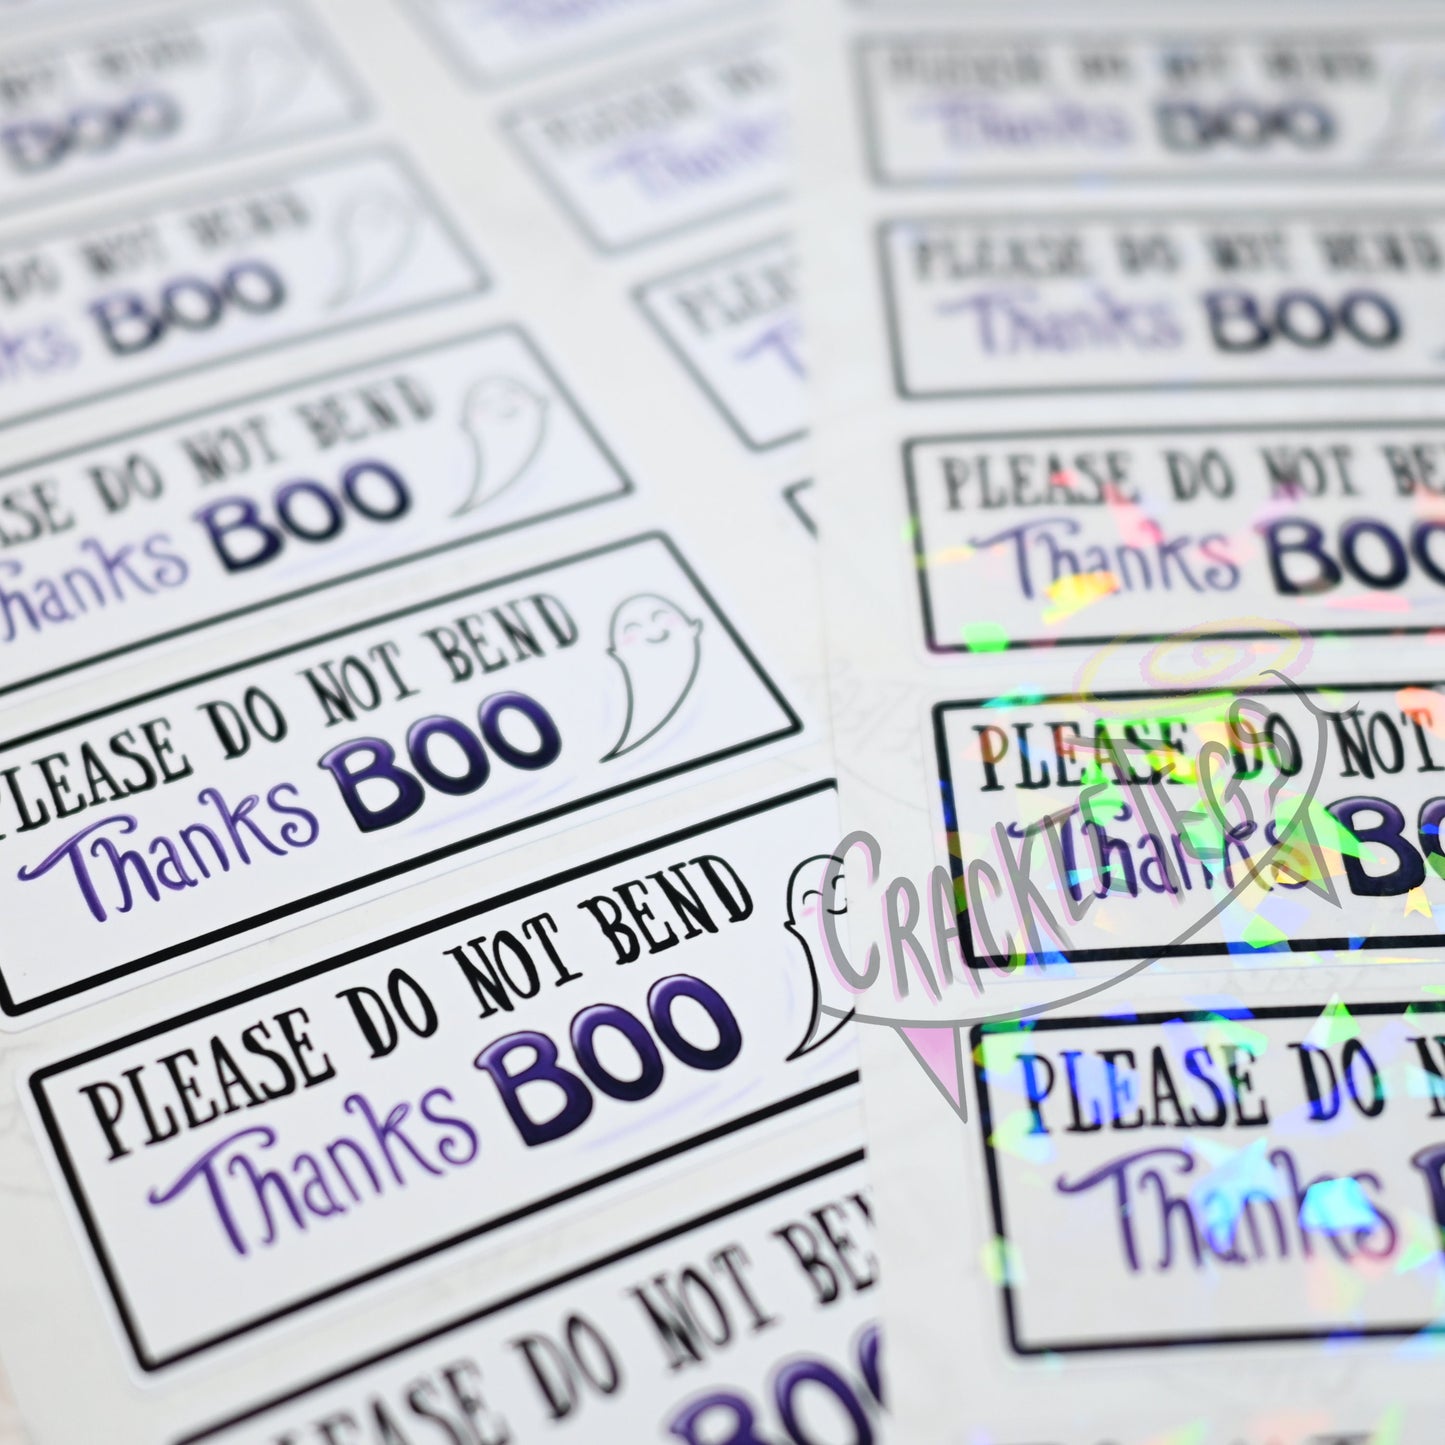 BOO
PLEASE DO NOT BEND
Thanks BOO
DO NOT BEND
Thanks BOO
PLEASE DO NOT BEND
Thanks BOO
PLEASE DO NOT BEND
Thanks BOO
PLEASE DO NOT BEND
Thanks BOO
PLEASE DO NOT BE
BOO
Thanks
PLEASE DO NOT BEND
Thanks BOO
PLEASE DO NOT BEND
Thanks BOO
PLEASE DO NOT BE
Thanks BOO
PLEASE DO NOT
Thanks BO
PLEASE DO N
Thanks
CRACKLETEGS